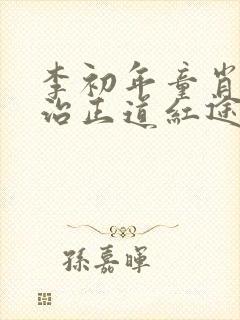 李初年童肖
治正道红途
孫嘉暉